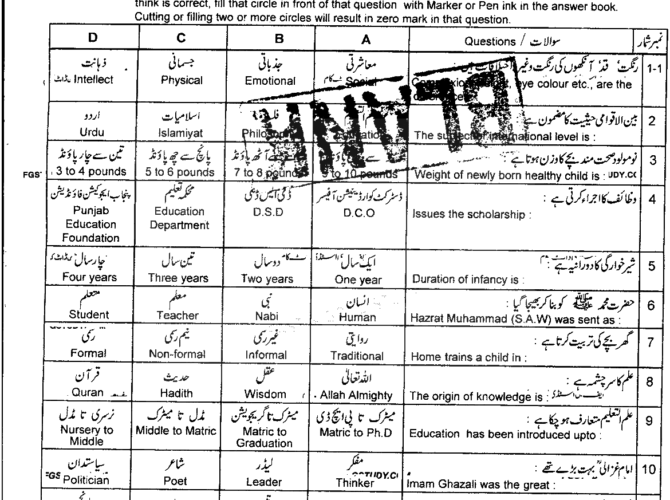 think is correct, fill that circle in front of that question with Marker or Pen ink in the answer book.
Cutting or filling two or more circles will result in zero mark in that question.
D C B A سوالات / Questions نمبر شمار
ذہانت جسمانی جذباتی معاشرتی رنگت، قد، آنکھوں کی رنگت وغیرہ 1-1
Intellect Physical Emotional Social eye colour etc., are the
اردو اسلامیات بین الاقوامی حیثیت کا مضمون ہے : 2
Urdu Islamiyat The subject of international level is :
تین سے چار پاؤنڈ پانچ سے چھ پاؤنڈ نومولود صحت مند بچے کا وزن ہوتا ہے : 3
3 to 4 pounds 5 to 6 pounds 7 to 8 pounds 9 to 10 pounds Weight of newly born healthy child is :
پنجاب ایجوکیشن فاؤنڈیشن محکمہ تعلیم ڈی ایس ڈی ڈسٹرکٹ کوآرڈینیشن آفیسر وظائف کا اجراء کرتی ہے : 4
Punjab Education Foundation Education Department D.S.D D.C.O Issues the scholarship :
چار سال تین سال دو سال ایک سال شیر خوارگی کا دورانیہ ہے : 5
Four years Three years Two years One year Duration of infancy is :
متعلم معلم نبی انسان حضرت محمد ﷺ کو بنا کر بھیجا گیا : 6
Student Teacher Nabi Human Hazrat Muhammad (S.A.W) was sent as :
رسمی نیم رسمی غیر رسمی روایتی گھر بچے کی تربیت کرتا ہے : 7
Formal Non-formal Informal Traditional Home trains a child in :
قرآن حدیث عقل اللہ تعالیٰ علم کا سرچشمہ ہے : 8
Quran Hadith Wisdom Allah Almighty The origin of knowledge is :
نرسری تا مڈل مڈل تا میٹرک میٹرک تا گریجویشن میٹرک تا پی ایچ ڈی علم التعلیم متعارف ہو چکا ہے : 9
Nursery to Middle Middle to Matric Matric to Graduation Matric to Ph.D Education has been introduced upto :
سیاستدان شاعر لیڈر مفکر امام غزالیؒ بہت بڑے تھے : 10
Politician Poet Leader Thinker Imam Ghazali was the great :